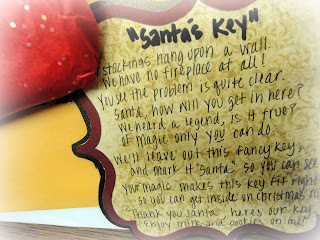 "Santa's Key"
Stockings hang upon a wall.
We have no fireplace at all!
You see the problem is quite clear.
Santa, how will you get in here?
We heard a legend, is it true?
of magic only you can do.
We'll leave out this fancy key,
and mark it "Santa" so you can see
your magic makes this key fit right
so you can get inside on Christmas
Thank you Santa, here's our key
enjoy milk and cookies on me!